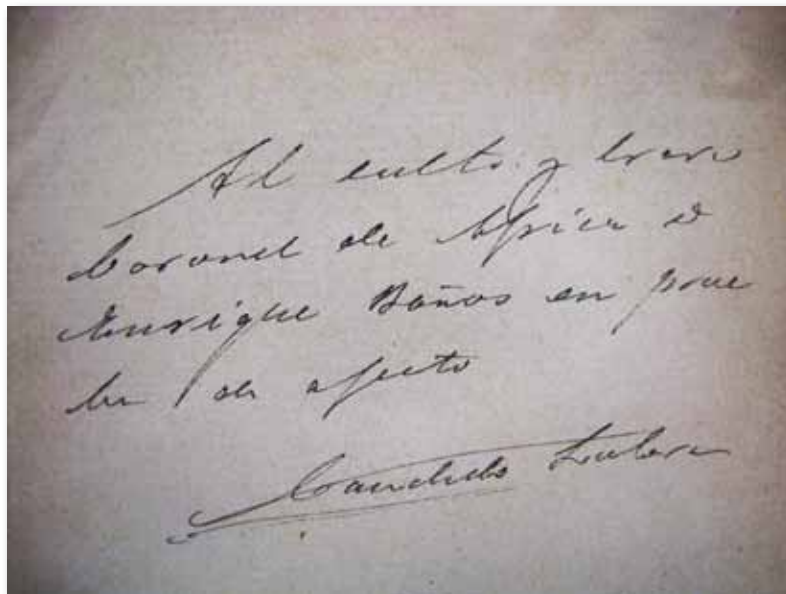 Al culto y bravo
Coronel de Africa D
Enrique Baños en prue
ba de afecto
Candido Lobera